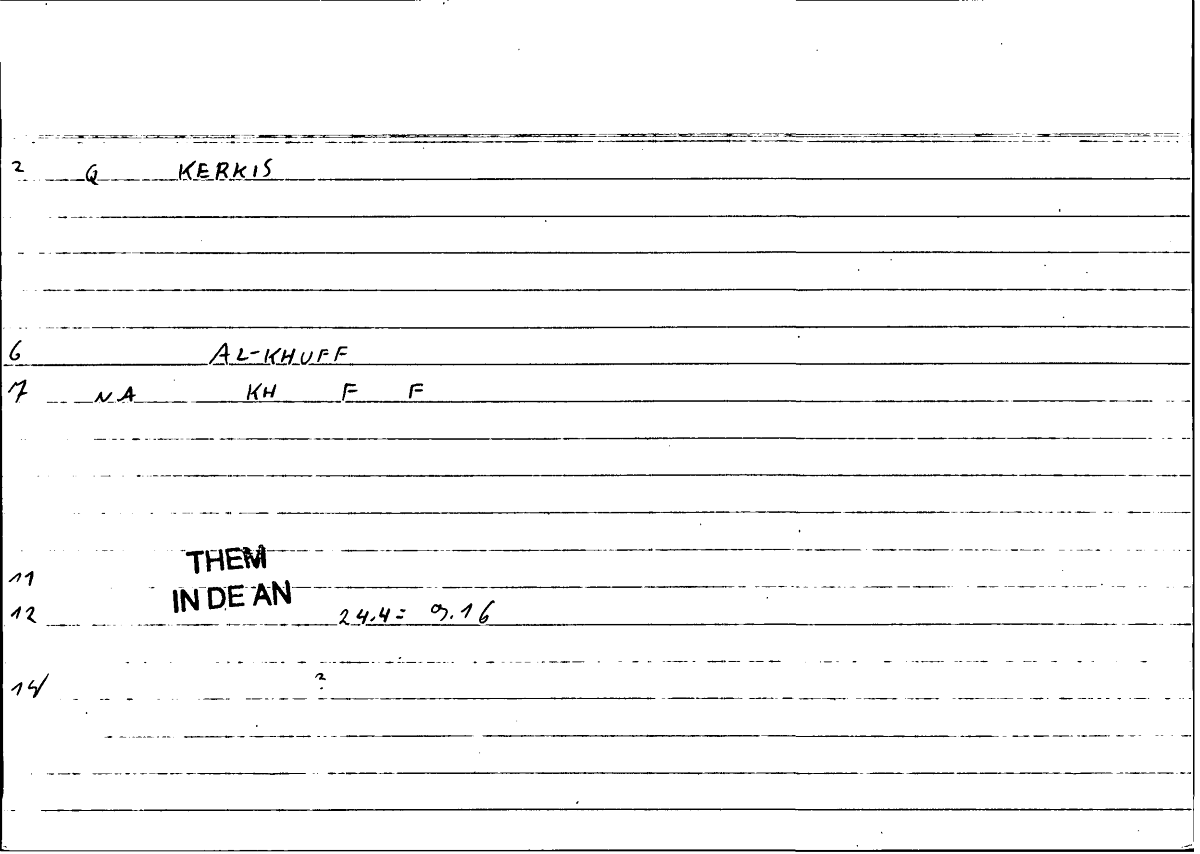 2 Q KERKIS
6 AL-KHUFF
7 NA KH F F
THEM
11
IN DE AN
12 24.4 = 9.16
14 ?